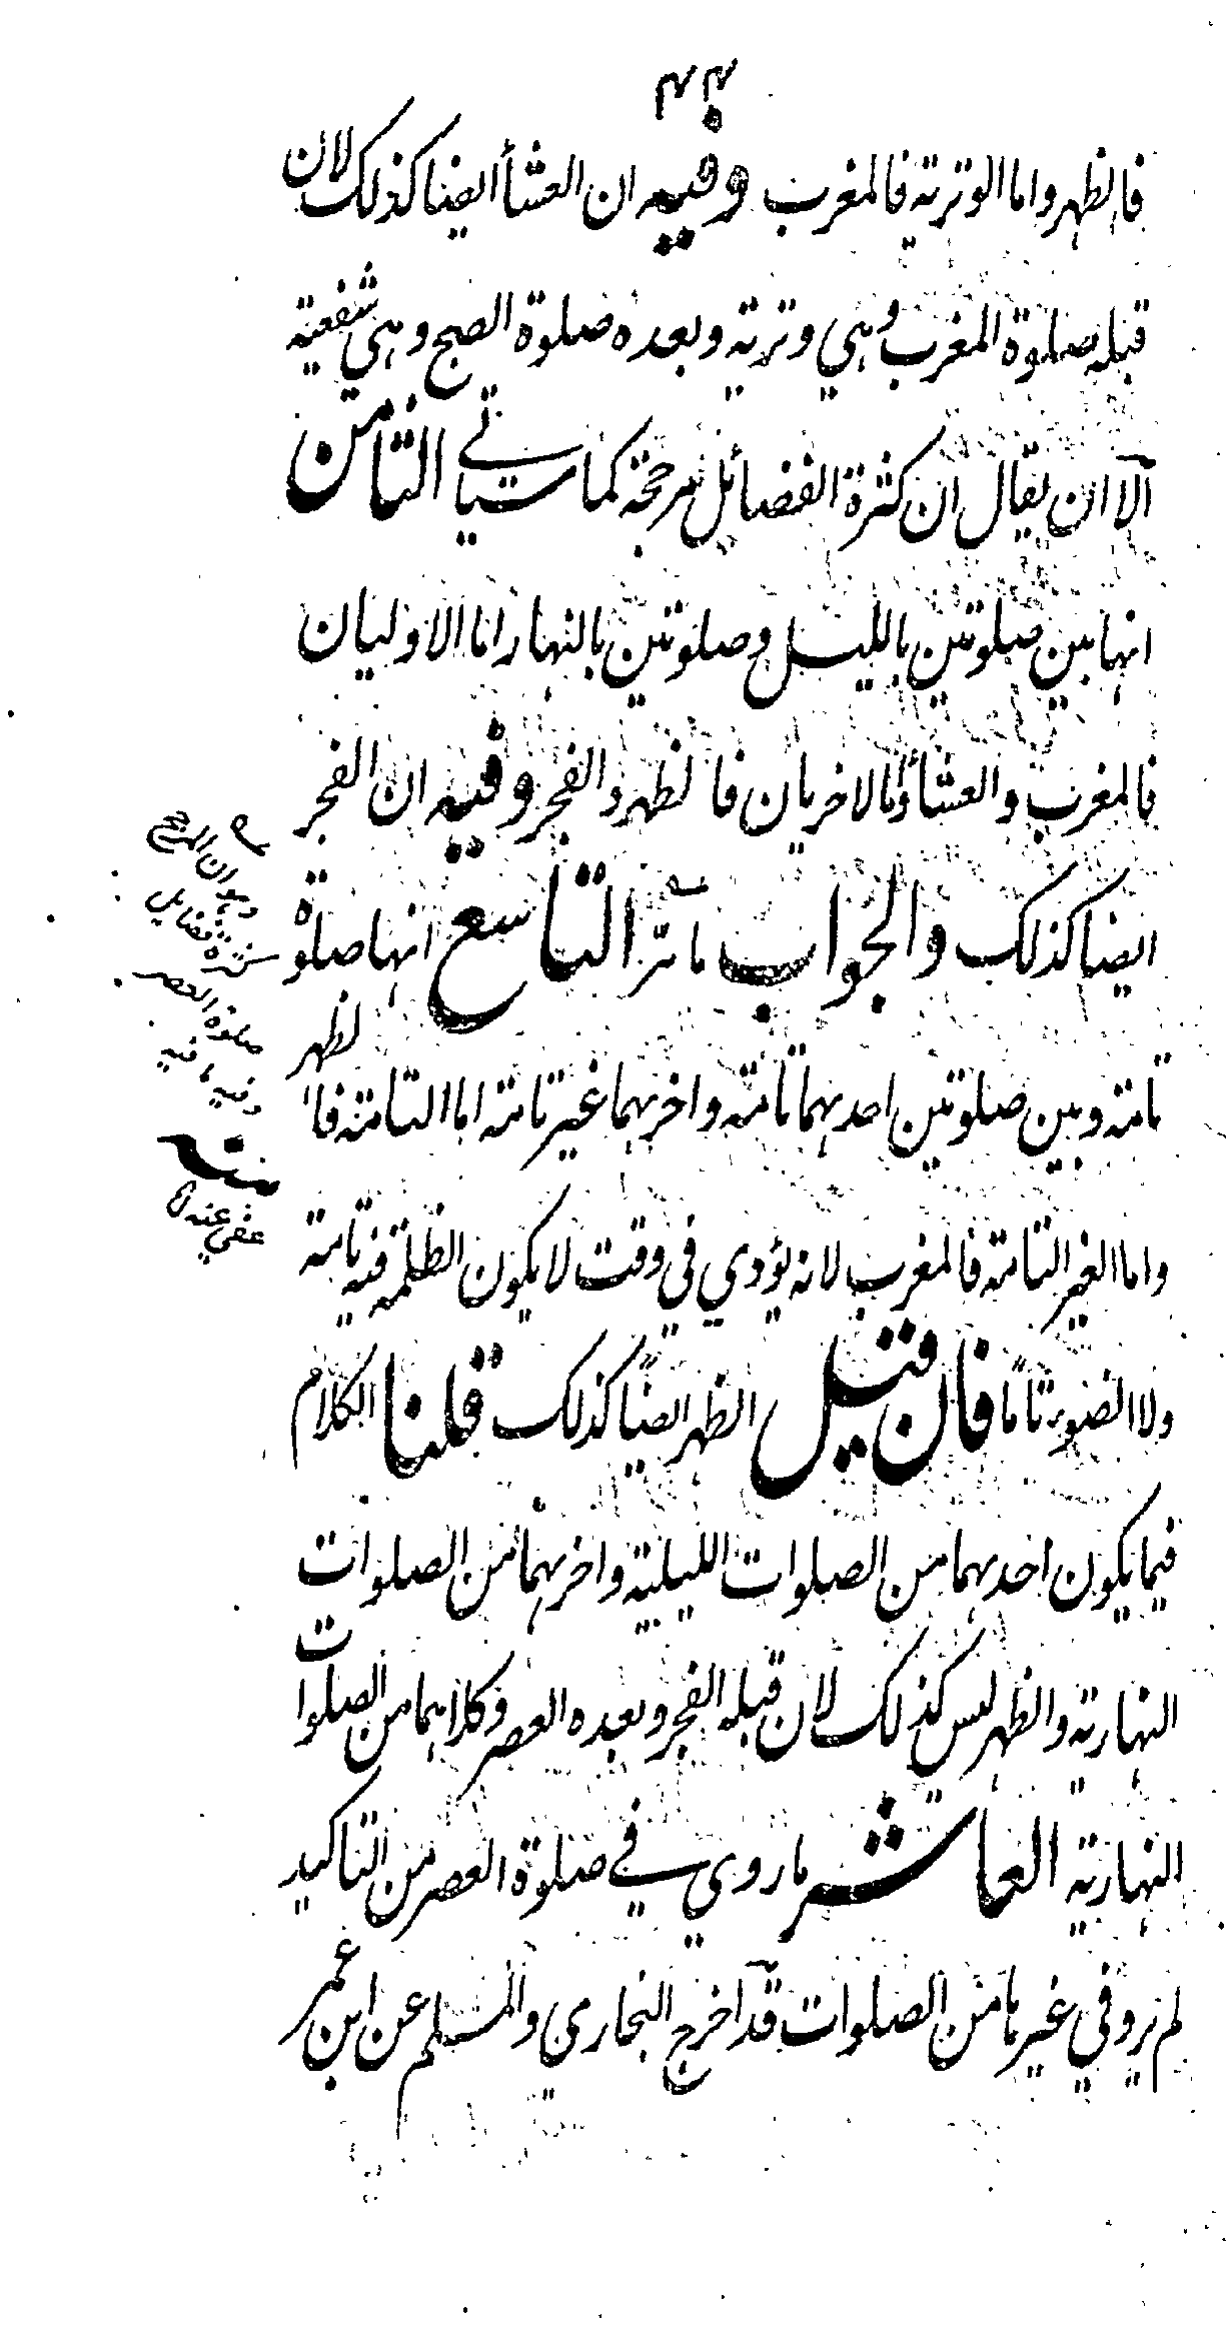 ۴۴
فالظهر واما الوترية فالمغرب وفيه ان العشأ ايضا كذلك لان
قبله صلوة المغرب وهي وترية وبعده صلوة الصبح وهي شفعية
آلا ان يقال ان كثرة الفضائل مرجحة كما سياتي الثامن
انها بين صلوتين بالليل وصلوتين بالنهار اما الاوليان
فالمغرب والعشأ واما الاخريان فالظهر والفجر وفيه ان الفجر
ايضا كذلك والجواب ما مر التاسع انها صلوة
تامة وبين صلوتين احدهما تامة واخرهما غير تامة اما التامة فالظهر
واما الغير التامة فالمغرب لانه يؤدي في وقت لا يكون الظلمة فيه تامة
ولا الضوء تامًا فان قيل الظهر ايضًا كذلك قلنا الكلام
فيما يكون احدهما من الصلوات الليلية واخرهما من الصلوات
النهارية والظهر ليس كذلك لان قبله الفجر وبعده العصر وكلاهما من الصلوات
النهارية العاشر ما روي في صلوة العصر من التاكيد
لم يرو في غيرها من الصلوات قد آخرج البخاري والمسلم عن ابن عمر
وهو ان المرجح
كثرة فضايل
صلوة العصر
وفيه ما فيه
منه
عفي عنه